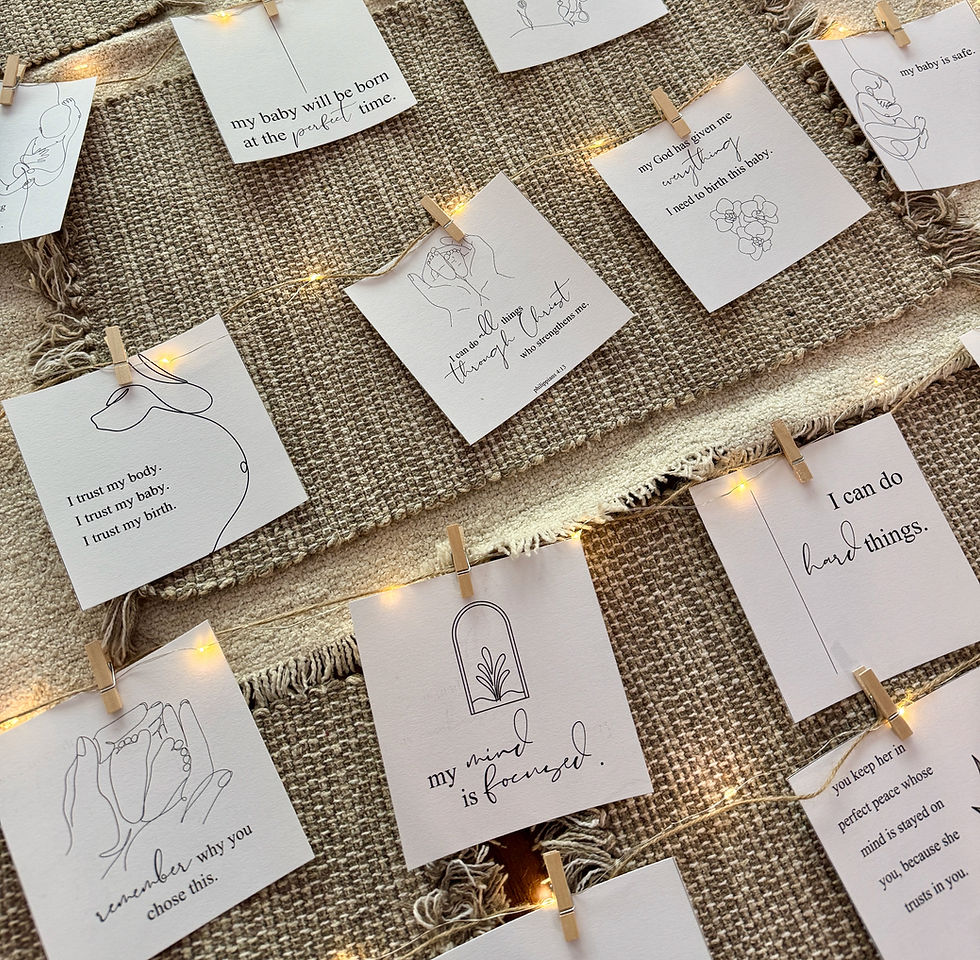 my baby will be born
at the perfect time.
my baby is safe.
my God has given me
everything
I need to birth this baby.
I can do all things
through Christ
who strengthens me.
philippians 4:13
I trust my body.
I trust my baby.
I trust my birth.
I can do
hard things.
my mind
is focused.
remember why you
chose this.
you keep her in
perfect peace whose
mind is stayed on
you, because she
trusts in you.